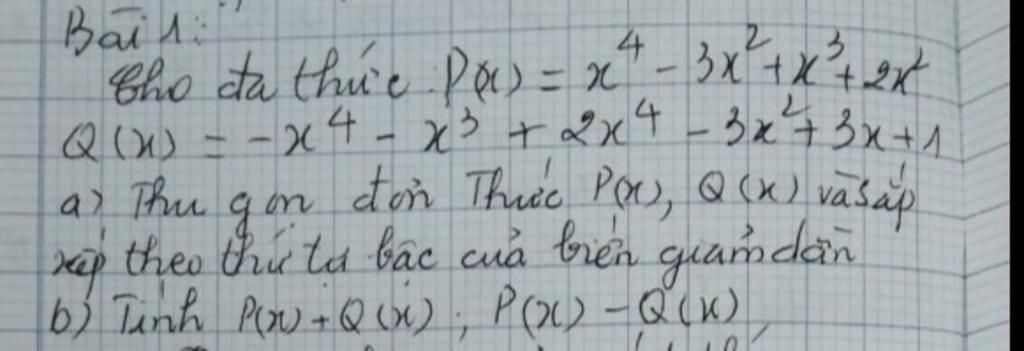 Bài 1:
Cho đa thức P(x) = x⁴ - 3x² + x³ + 2x²
Q(x) = -x⁴ - x³ + 2x⁴ - 3x² + 3x + 1
a) Thu gọn đơn Thức P(x), Q(x) và sắp
xếp theo thứ tự bậc của biến giảm dần
b) Tính P(x) + Q(x); P(x) - Q(x)